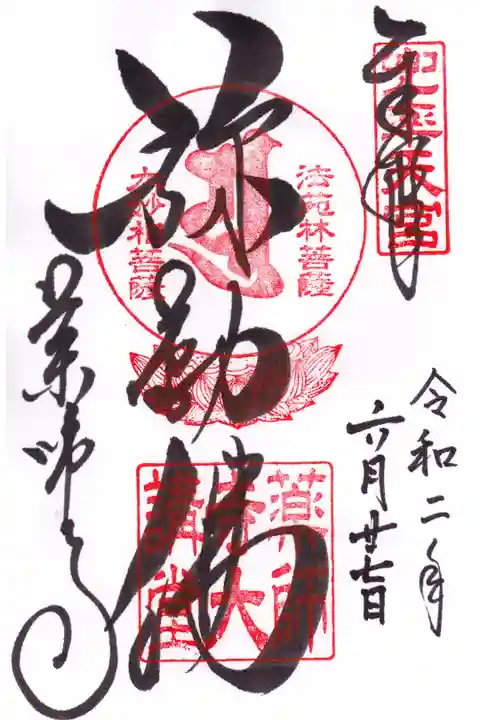 奉拝
令和二年
六月廿七日
弥勒佛
法苑林菩薩
大妙相菩薩
薬師寺大講堂
薬師寺